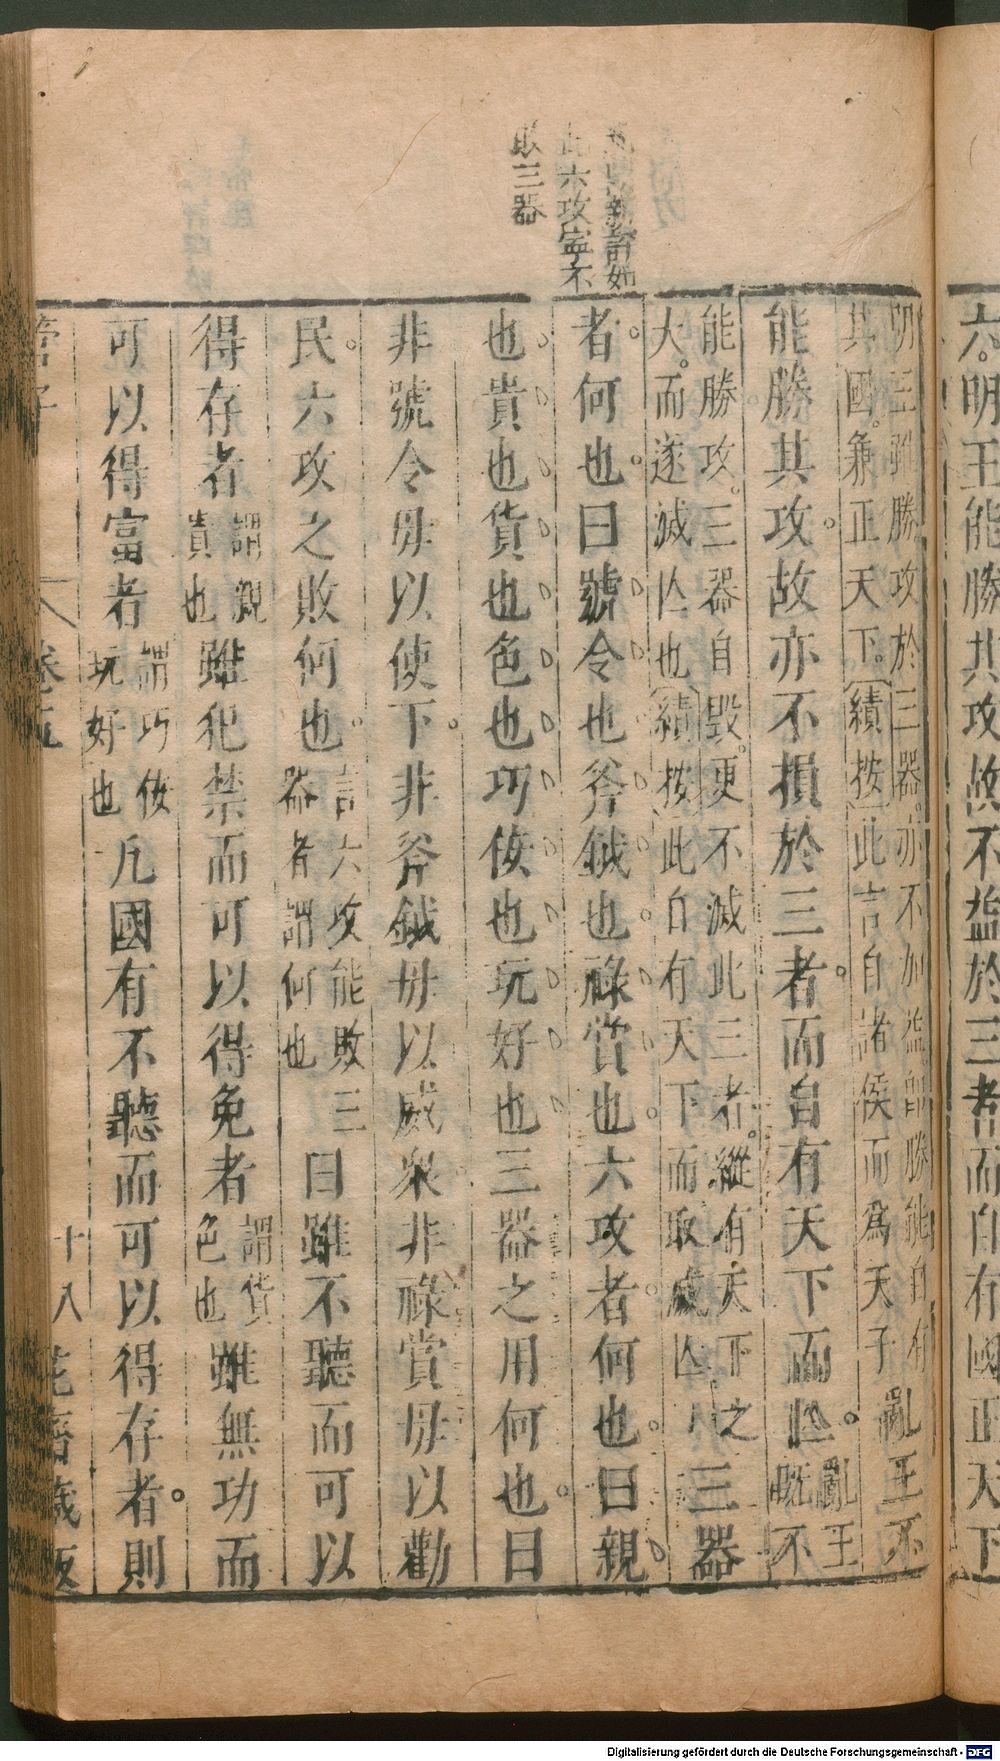 六明王能勝其攻故不益於三者而自有國正天下
明王雖勝攻於三器亦不加益即勝能自有
其國兼正天下績按此言自諸侯而為天子
亂王不
能勝其攻故亦不損於三者而自有天下而亾
亂王
既不
能勝攻三器自毀更不滅此三者縱有天下之
大而遂滅亾也績按此自有天下而取滅亾
三器
者何也曰號令也斧鉞也祿賞也六攻者何也曰親
也貴也貨也色也巧佞也玩好也三器之用何也曰
非號令毋以使下非斧鉞毋以威衆非祿賞毋以勸
民六攻之敗何也
言六攻能敗三
器者謂何也
曰雖不聽而可以
得存者
謂親
貴也
雖犯禁而可以得免者
謂貨
色也
雖無功而
可以得富者
謂巧佞
玩好也
凡國有不聽而可以得存者則
管子
卷五
十八
花齋藏板
此六攻寧不
敗三器
Digitalisierung gefördert durch die Deutsche Forschungsgemeinschaft - DFG